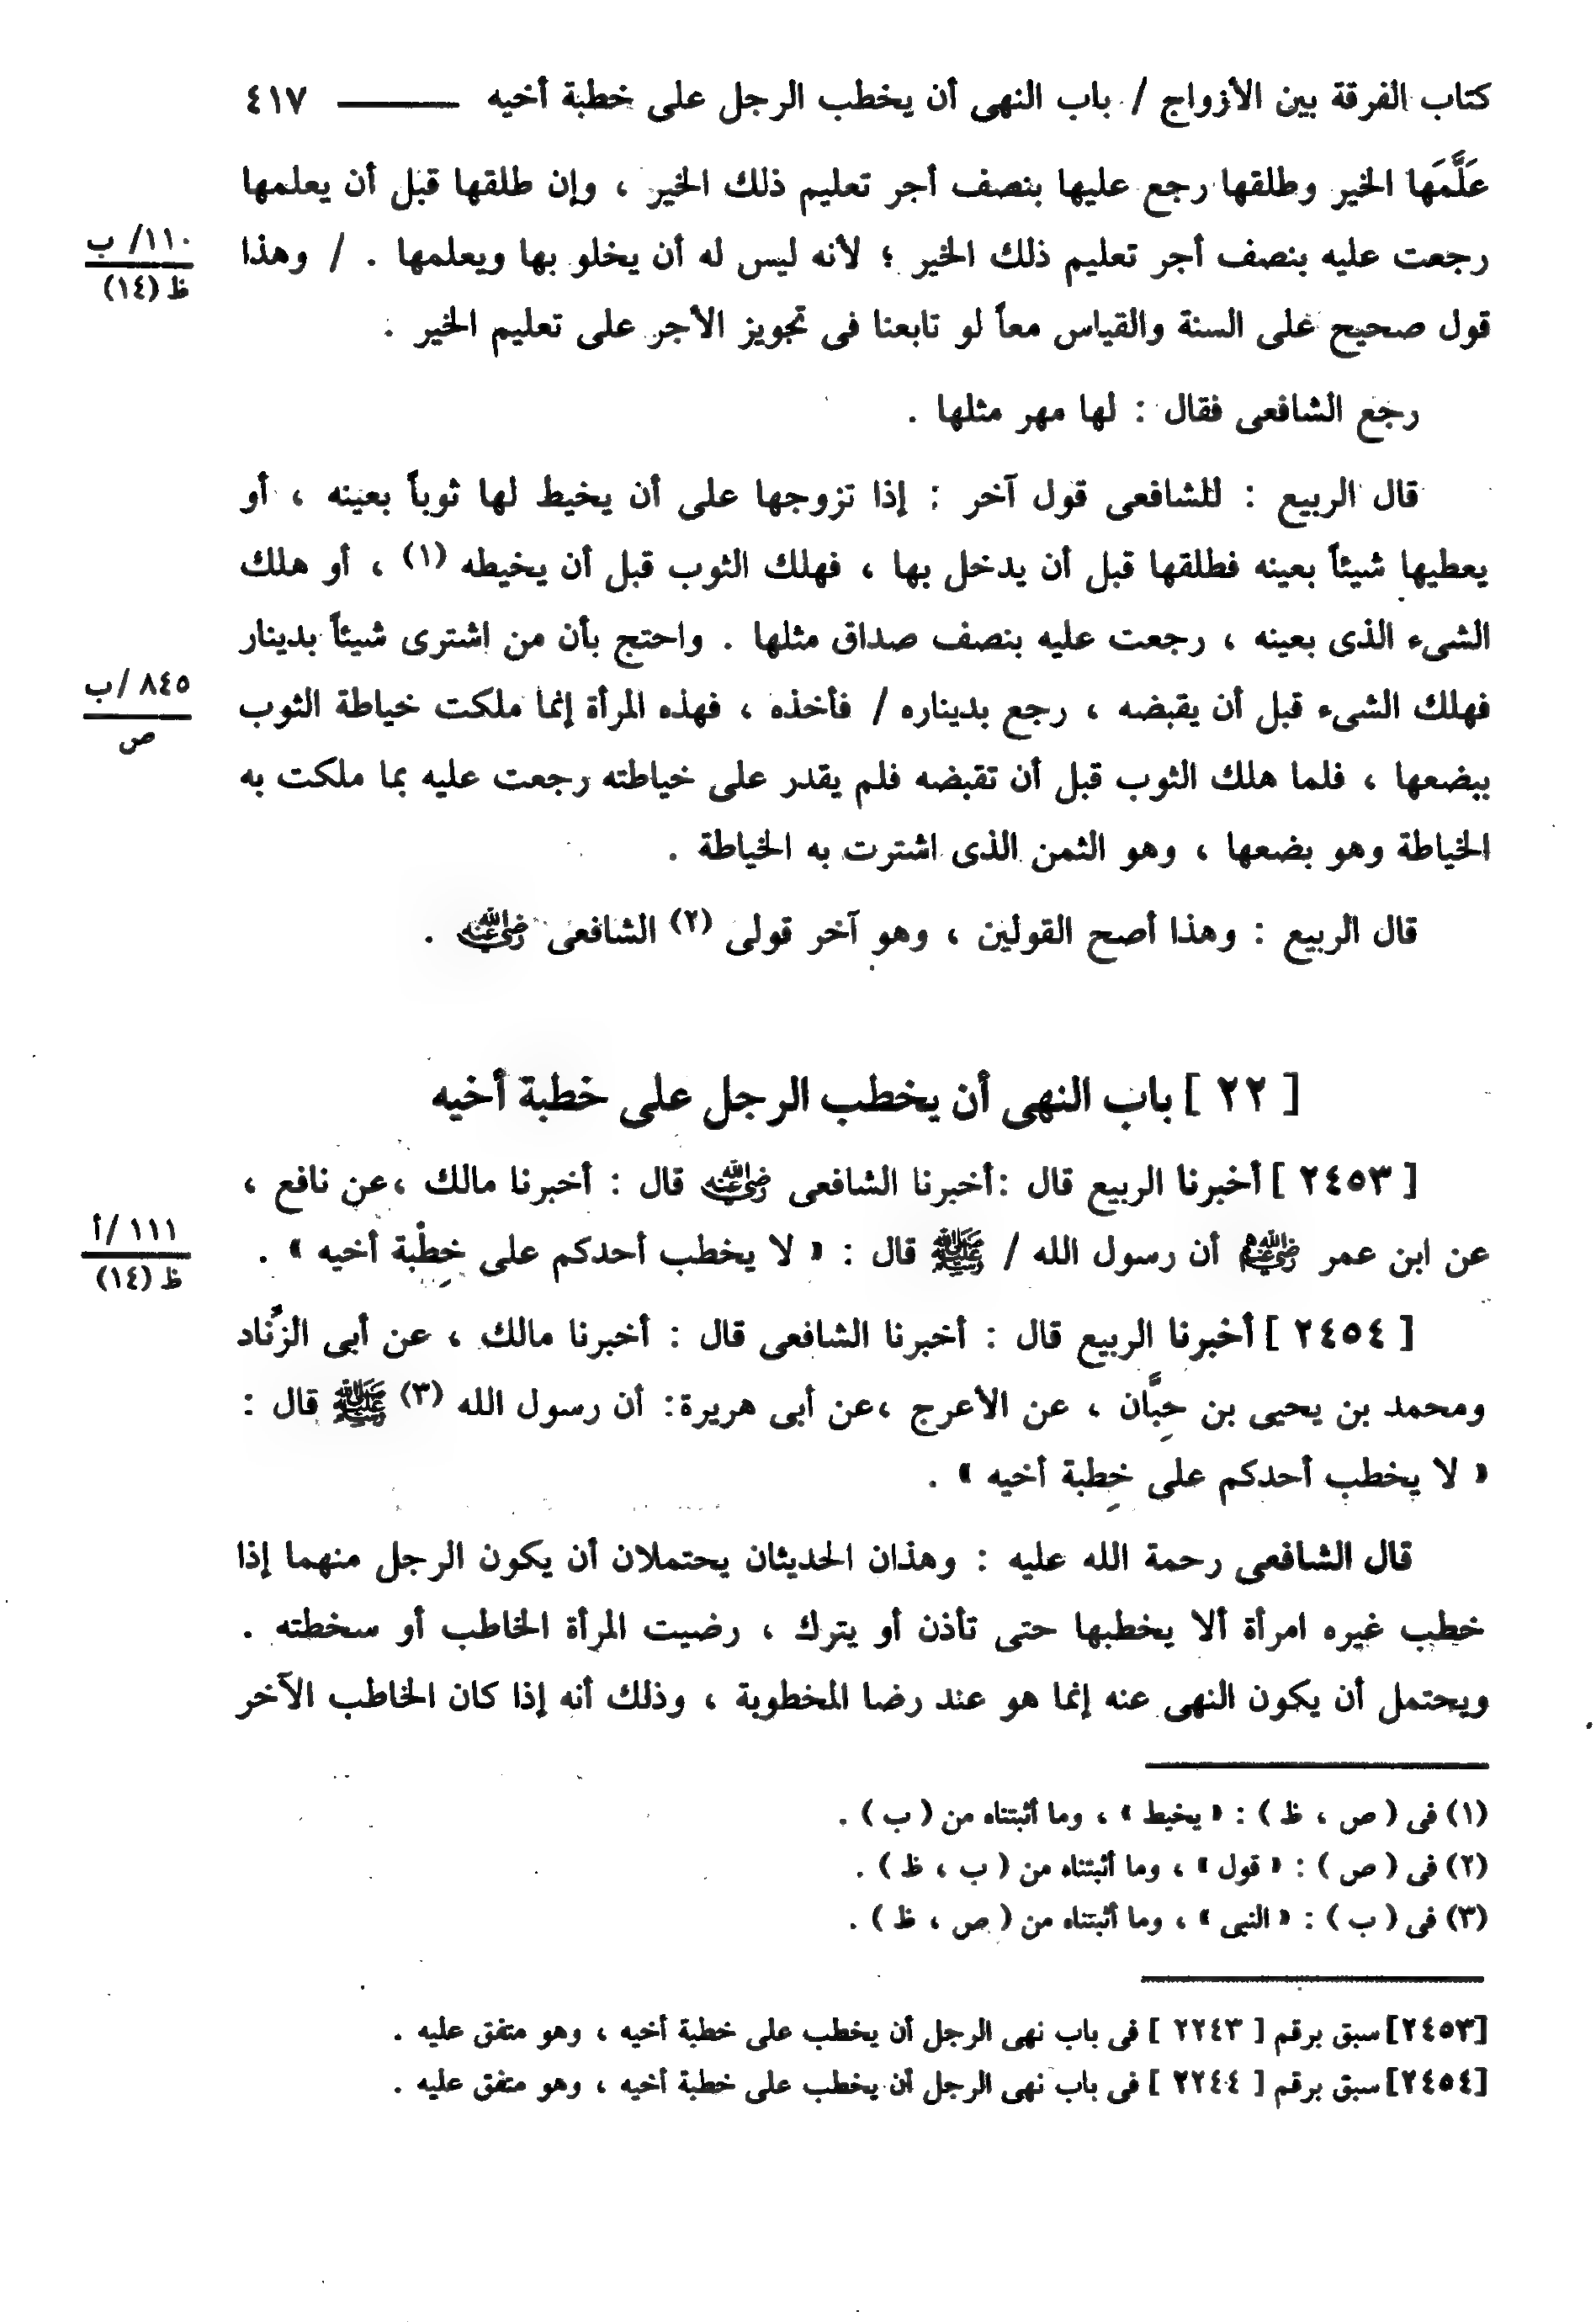 كتاب الفرقة بين الأزواج / باب النهى أن يخطب الرجل على خطبة أخيه ــــــ ٤١٧
عَلَّمَها الخير وطلقها رجع عليها بنصف أجر تعليم ذلك الخير ، وإن طلقها قبل أن يعلمها
رجعت عليه بنصف أجر تعليم ذلك الخير ؛ لأنه ليس له أن يخلو بها ويعلمها . / وهذا
١١٠/ ب
ظ (١٤)
قول صحيح على السنة والقياس معاً لو تابعنا فى تجويز الأجر على تعليم الخير .
رجع الشافعى فقال : لها مهر مثلها .
قال الربيع : للشافعى قول آخر : إذا تزوجها على أن يخيط لها ثوباً بعينه ، أو
يعطيها شيئاً بعينه فطلقها قبل أن يدخل بها ، فهلك الثوب قبل أن يخيطه (١) ، أو هلك
الشىء الذى بعينه ، رجعت عليه بنصف صداق مثلها . واحتج بأن من اشترى شيئاً بدينار
فهلك الشىء قبل أن يقبضه ، رجع بديناره / فأخذه ، فهذه المرأة إنما ملكت خياطة الثوب
٨٤٥ /ب
ص
ببضعها ، فلما هلك الثوب قبل أن تقبضه فلم يقدر على خياطته رجعت عليه بما ملكت به
الخياطة وهو بضعها ، وهو الثمن الذى اشترت به الخياطة .
قال الربيع : وهذا أصح القولين ، وهو آخر قولى (٢) الشافعى رضي الله عنه .
[ ٢٢ ] باب النهى أن يخطب الرجل على خطبة أخيه
[ ٢٤٥٣ ] أخبرنا الربيع قال :أخبرنا الشافعى رضي الله عنه قال : أخبرنا مالك ،عن نافع ،
عن ابن عمر رضي الله عنهم أن رسول الله / ﷺ قال : « لا يخطب أحدكم على خِطْبة أخيه » .
١١١ /أ
ظ (١٤)
[ ٢٤٥٤ ] أخبرنا الربيع قال : أخبرنا الشافعى قال : أخبرنا مالك ، عن أبى الزِّناد
ومحمد بن يحيى بن حِبَّان ، عن الأعرج ،عن أبى هريرة: أن رسول الله (٣) ﷺ قال :
« لا يخطب أحدكم على خِطبة أخيه » .
قال الشافعى رحمة الله عليه : وهذان الحديثان يحتملان أن يكون الرجل منهما إذا
خطب غيره امرأة ألا يخطبها حتى تأذن أو يترك ، رضيت المرأة الخاطب أو سخطته .
ويحتمل أن يكون النهى عنه إنما هو عند رضا المخطوبة ، وذلك أنه إذا كان الخاطب الآخر
(١) فى ( ص ، ظ ) : « يخيط » ، وما أثبتناه من ( ب ) .
(٢) فى ( ص ) : « قول » ، وما أثبتناه من ( ب ، ظ ) .
(٣) فى ( ب ) : « النبى » ، وما أثبتناه من ( ص ، ظ ) .
[٢٤٥٣] سبق برقم [ ٢٢٤٣ ] فى باب نهى الرجل أن يخطب على خطبة أخيه ، وهو متفق عليه .
[٢٤٥٤] سبق برقم [ ٢٢٤٤ ] فى باب نهى الرجل أن يخطب على خطبة أخيه ، وهو متفق عليه .